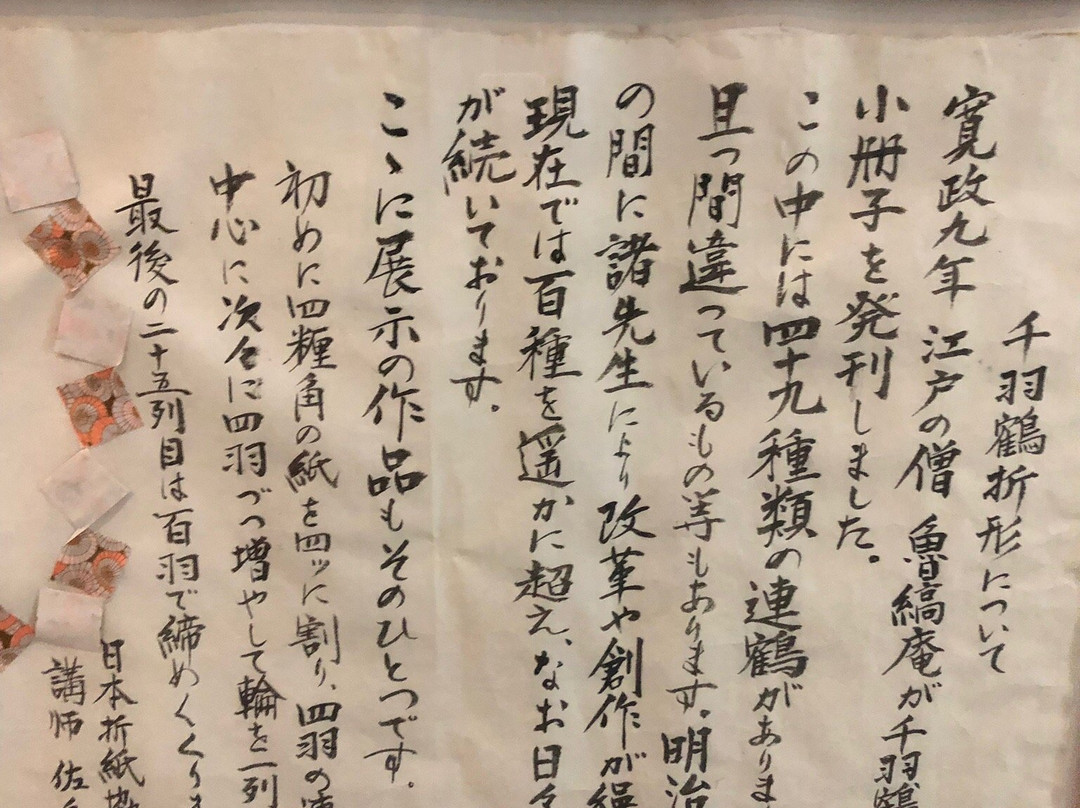 千羽鶴折形について
寛政九年 江戸の僧 魯縞庵が千羽鶴
小冊子を発刊しました。
この中には四十九種類の連鶴がありま
且つ間違っているもの等もあります。明治
の間に諸先生により改革や創作が
現在では百種を遥かに超え、なお日々
が続いております。
こゝに展示の作品もそのひとつです。
初めに四糎角の紙を四ッに割り、四羽の
中心に次々に四羽づつ増やして輪を一列
最後の二十五列目は百羽で締めくくりま
日本折紙協
講師 佐